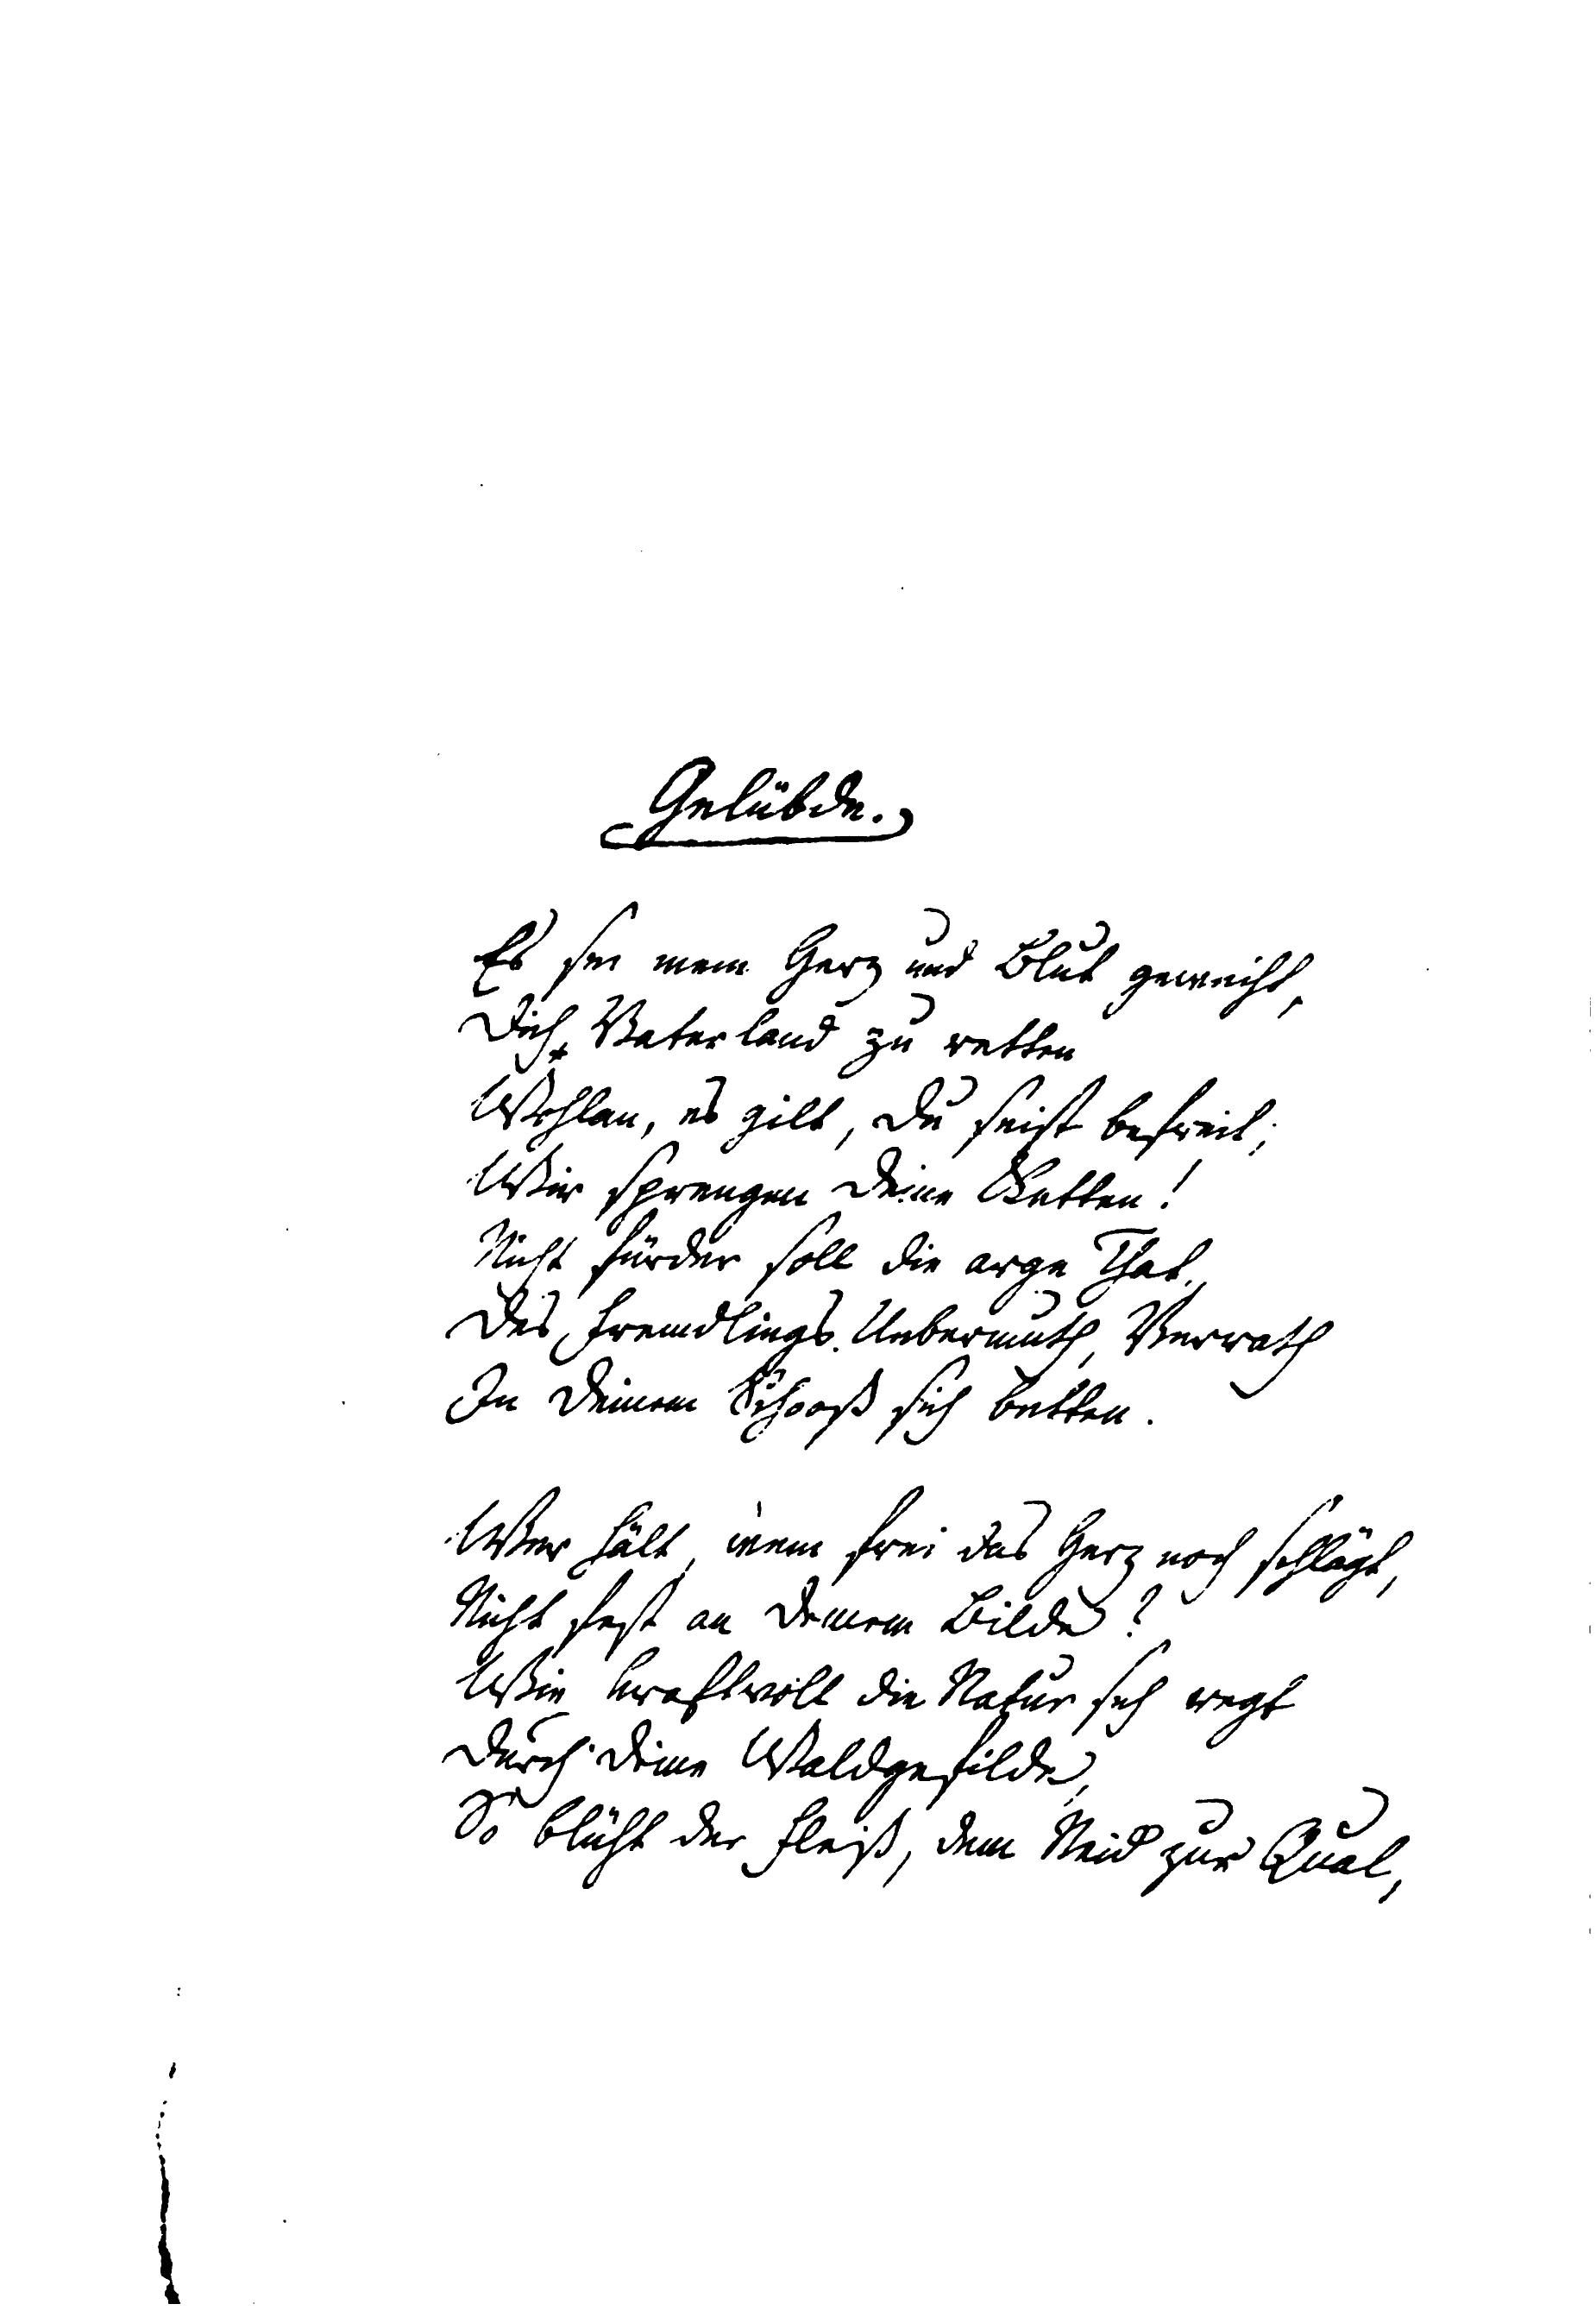 Gelübde.
Es sei mein Herz und Blut geweiht,
Dich, Vaterland zu retten
Wohlan, es gilt, du seist befreit;
Wir sprengen deine Ketten!
Nicht fürder soll die arge That,
Des Fremdlings Uebermuth, Verrath
In deinem Schooß sich betten.
Wer hält, wem frei das Herz noch schlägt,
Nicht fest an deinem Bilde?
Wie kraftvoll die Natur sich regt
Durch deine Waldgefilde,
So blüht der Fleiß, dem Neid zur Qual,